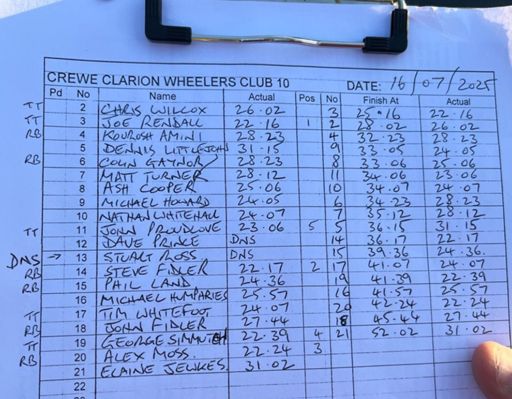 CREWE CLARION WHEELERS CLUB 10 DATE: 16/07/2025
Pd No Name Actual Pos No Finish At Actual
TT 2 CHRIS WILLCOX 26.02 3 25.16 22.16
TT 3 JOE RENDALL 22.16 1 2 28.02 26.02
RB 4 KOUROSH AMINI 28.23 4 32.23 28.23
5 DENNIS 31.15 9 33.05 24.05
RB 6 COLIN GAYNOR 28.23 8 33.06 25.06
7 MATT TURNER 28.12 11 34.06 23.06
8 ASH COOPER 25.06 10 34.07 24.07
9 MICHAEL HOWARD 24.05 6 34.23 28.23
10 NATHAN WHITEHALL 24.07 7 35.12 28.12
TT 11 JOHN PROUDLOVE 23.06 5 5 36.15 31.15
12 DAVE PRINCE DNS 14 36.17 22.17
DNS → 13 STUART ROSS DNS 15 39.36 24.36.
RB 14 STEVE FIDLER 22.17 2 17 41.07 24.07
RB 15 PHIL LAND 24.36 19 41.39 22.39
16 MICHAEL HUMPHRIES 25.57 16 41.57 25.57
TT 17 TIM WHITEFOOT 24.07 20 42.24 22.24
RB 18 JOHN FIDLER 27.44 18 45.44 27.44
TT 19 GEORGE 22.39 4 21 52.02 31.02
RB 20 ALEX MOSS. 22.24 3
21 ELAINE JEWKES. 31.02
22